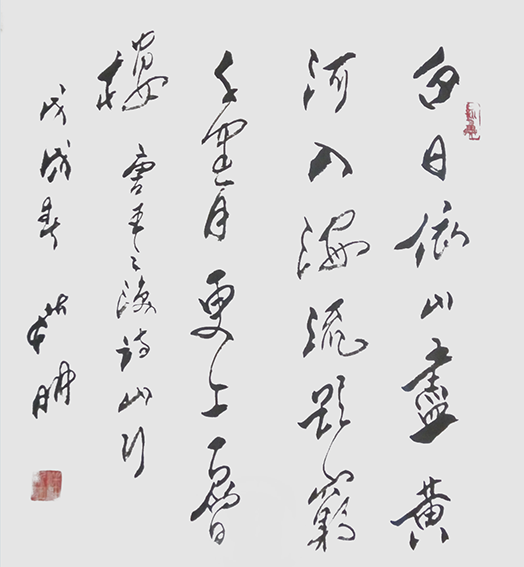 白日依山盡黄
河入海流欲窮
千里目更上一層
樓 唐王之渙詩山行
戊戌春